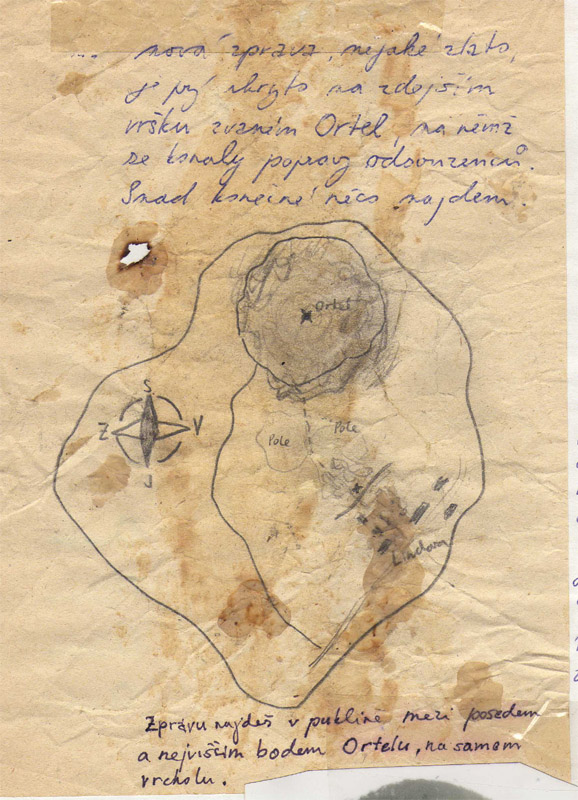 ... nová zpráva, nějaké zlato,
je prý ukryto na zdejším
vršku zvaném Ortel, na němž
se konaly popravy odsouzenců.
Snad konečně něco najdem.
Ortel
S
Z V
J
Pole
Pole
Lindava
Zprávu najdeš v puklině mezi posedem
a nejvišším bodem Ortelu, na samém
vrcholu.